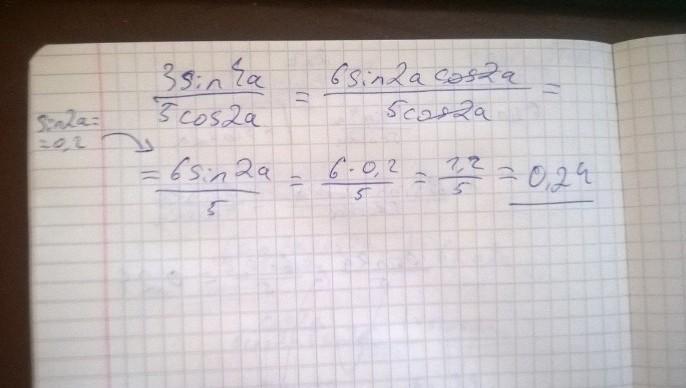 3sin4a/5cos2a = 6sin2a cos2a/5cos2a =
sin2a=
=0,2
= 6sin2a/5 = 6·0,2/5 = 1,2/5 = 0,24